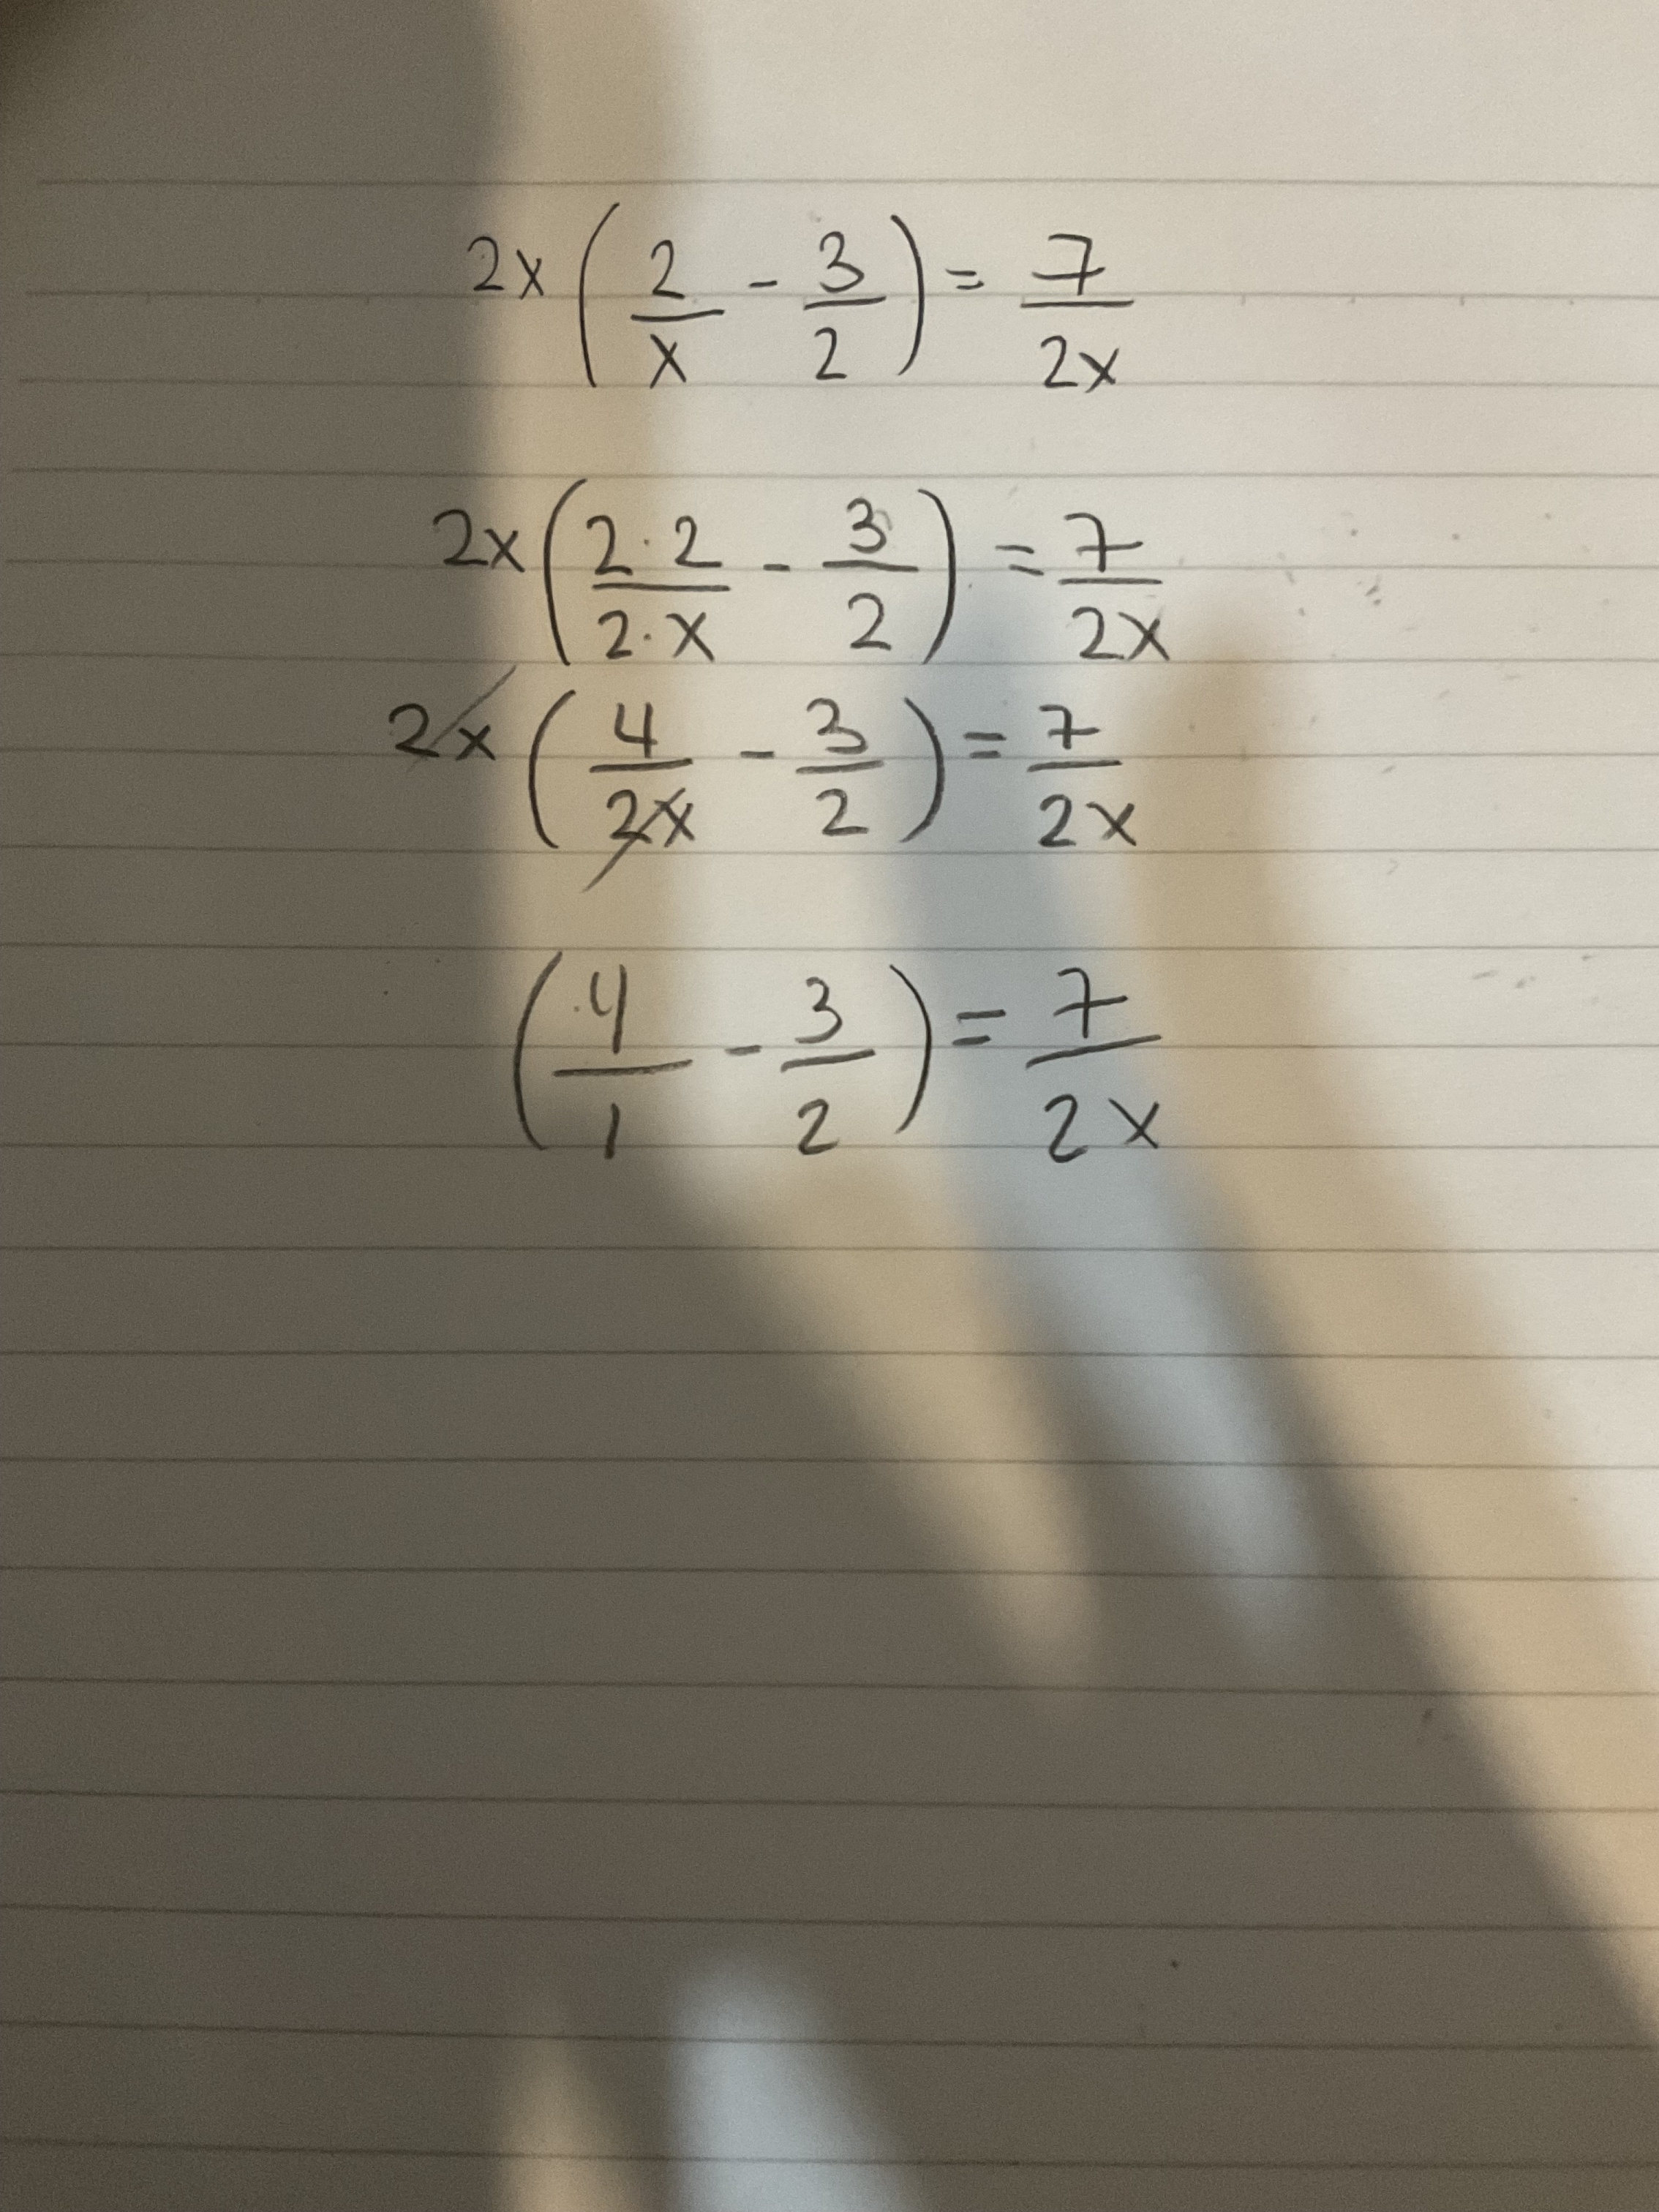 2x(2/x - 3/2) = 7/2x
2x(2·2/2·x - 3/2) = 7/2x
2x(4/2x - 3/2) = 7/2x
(4/1 - 3/2) = 7/2x